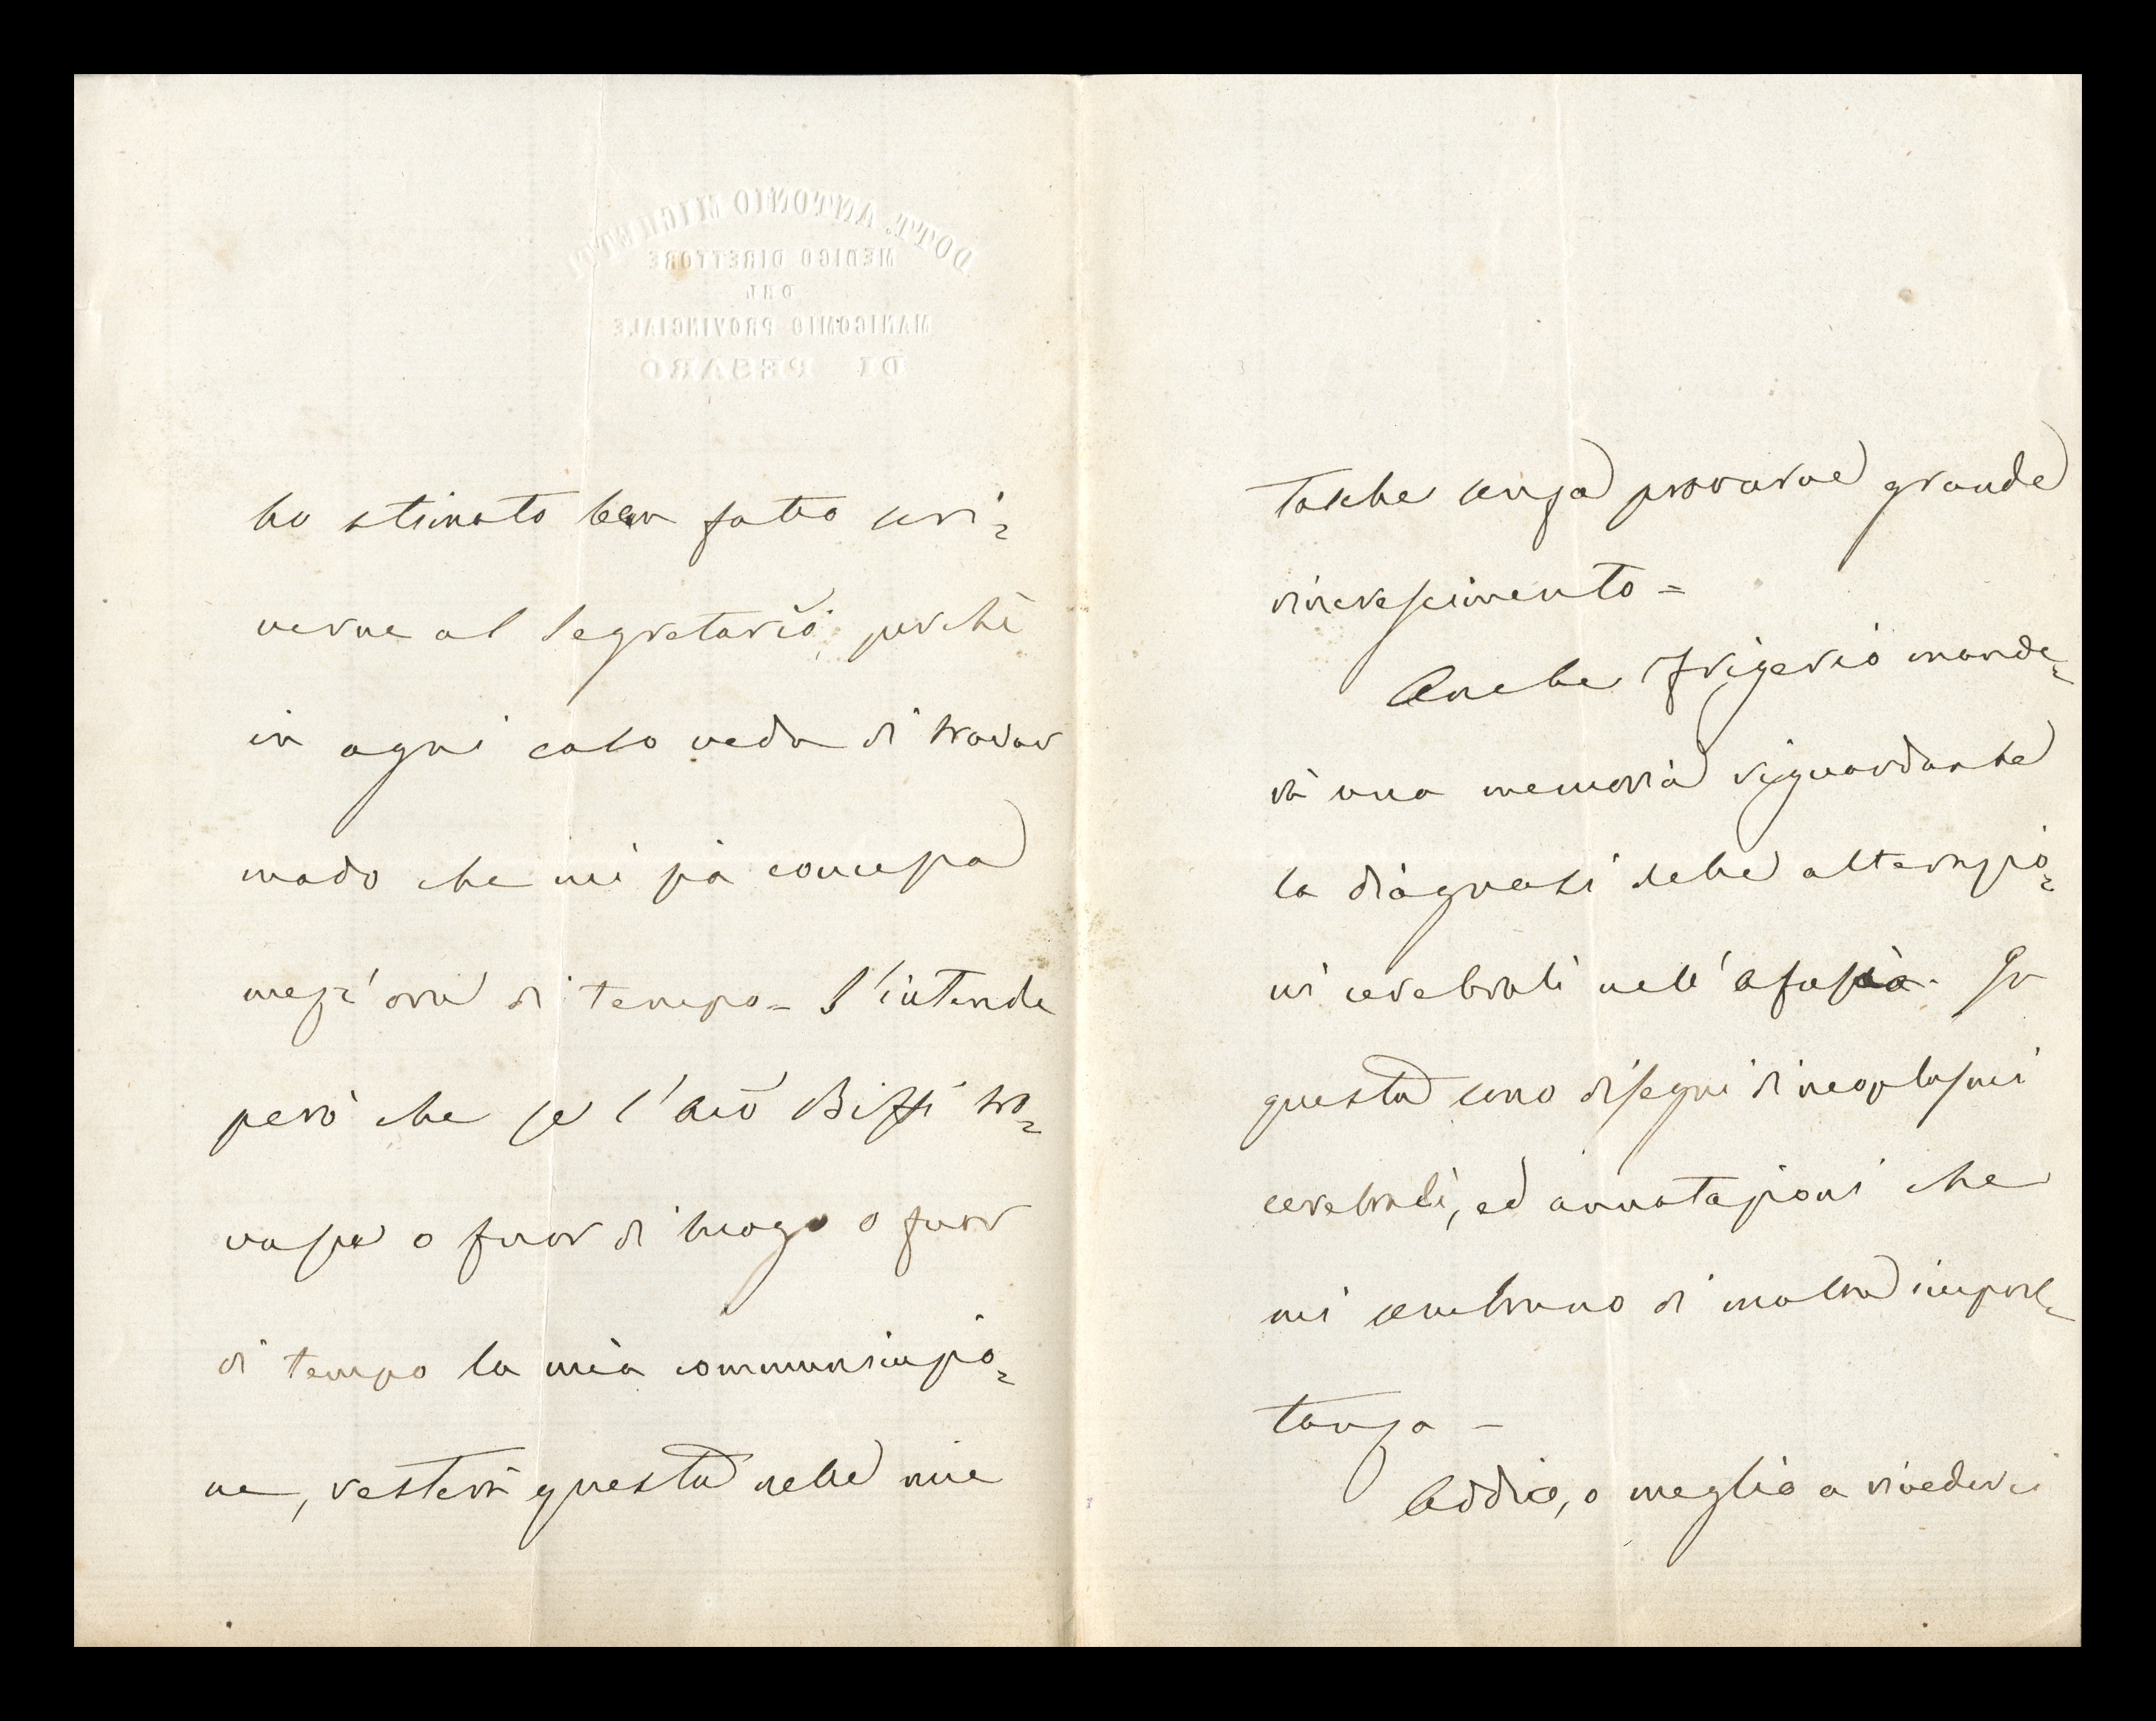 DOTT. ANTONIO MICHETTI
MEDICO DIRETTORE
DEL
MANICOMIO PROVINCIALE
DI PESARO
ho stimato ben fatto scri=
verne al Segretario, perchè
in ogni caso veda di trovar
modo che mi sia concessa
mezz'ora di tempo = S'intende
però che se l'amo Biffi tro=
vasse o fuor di luogo o fuor
di tempo la mia communicazio=
ne, resterà questa nelle mie
tasche senza provarne grande
rincrescimento =
Anche Frigerio mande=
rà una memoria riguardante
la diagnosi delle alterazio=
ni cerebrali nell'afasia. In
questa sono disegni di neoplasmi
cerebrali, ed annotazioni che
mi sembrano di molta impor=
tanza –
Addio, o meglio a rivederci